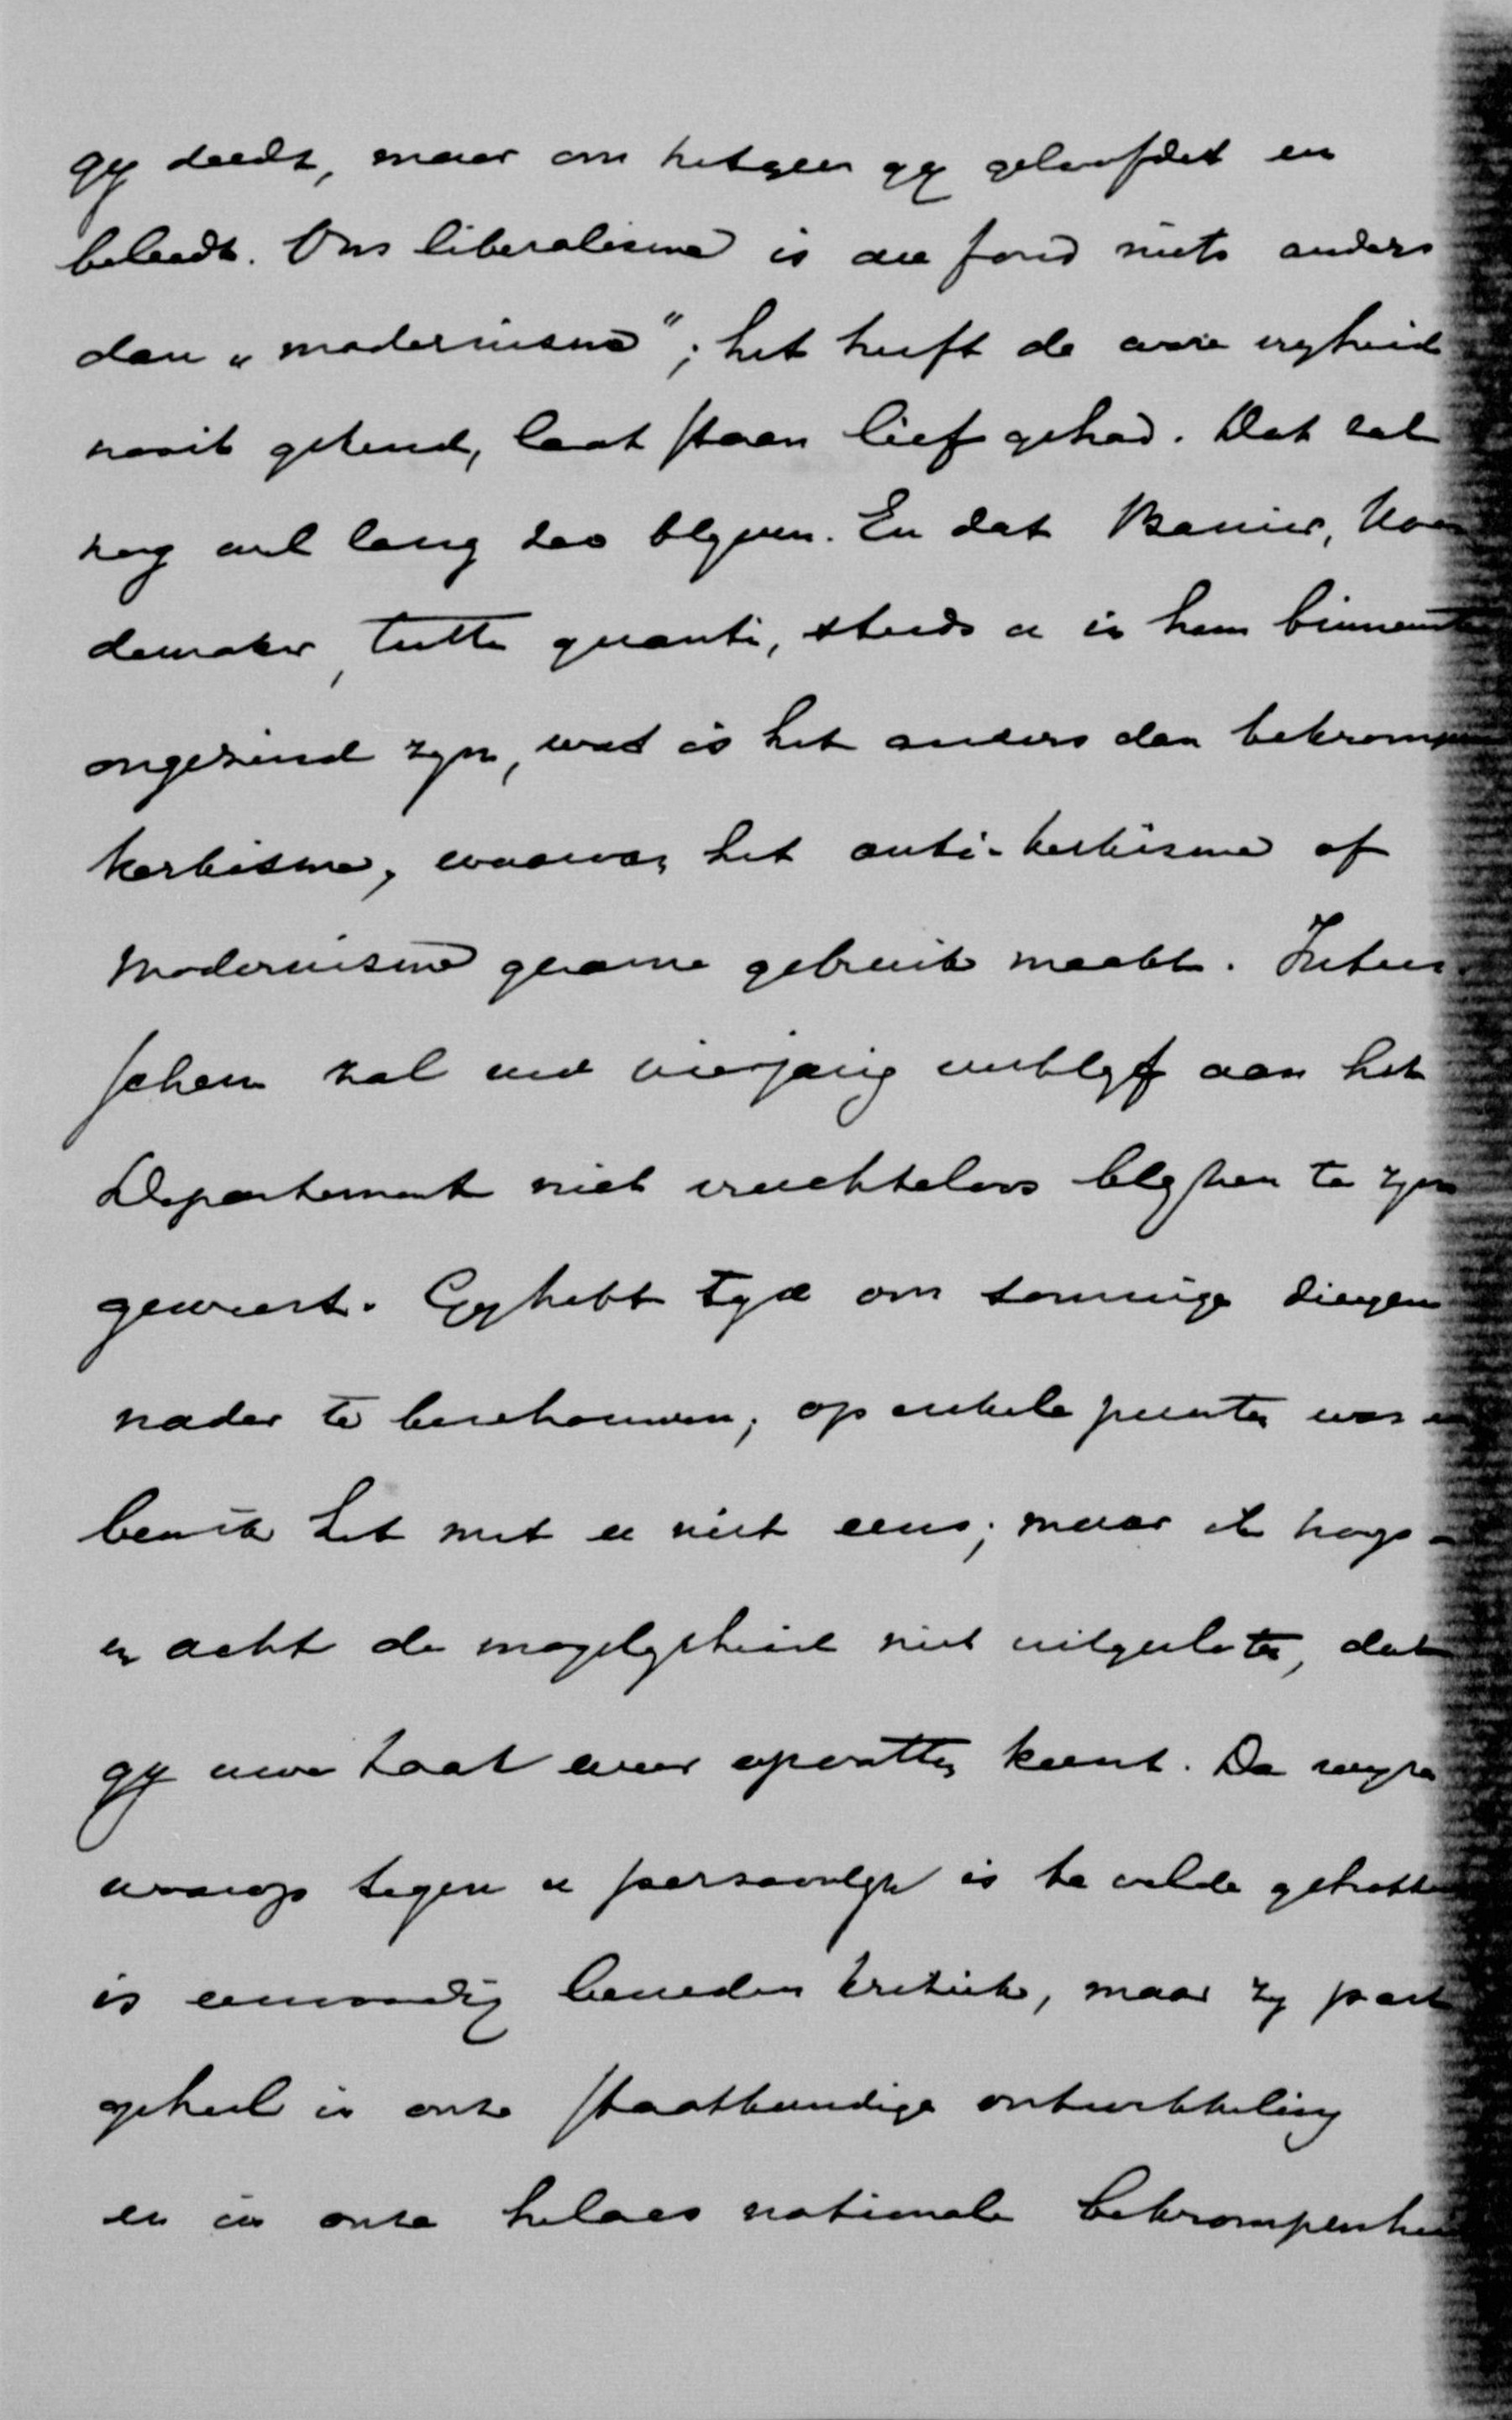 gy deedt, maar om hetgeen gy geloofdet en
beleedt. Ons liberalisme is au fond niets anders
dan „modernisme"; het heeft de ware vryheid
nooit gekend, laat staan lief gehad. Dat zal
nog wel lang zoo blyven. En dat Banier,
tutti quanti, steeds u in hun binnenste
ongezind zyn, wat is het anders dan bekrompen
kerkisme, waarvan het anti-kerkisme of
modernisme gaarne gebruik maakt. Intus
schen zal uw vierjarig verblyf aan het
Departement niet vruchteloos blyken te zyn
geweest. Gy hebt tyd om sommige dingen
nader te beschouwen; op enkele punten was en
ben ik het met u niet eens; maar ik hoop
en acht de mogelykheid niet uitgesloten, dat
gy uwe taak weer opvatten kunt. De wyze
waarop tegen u persoonlyk is te velde getrokken
is eenvoudig beneden kritiek, maar zy past
geheel in onze staatkundige ontwikkeling
en in onze helaas nationale bekrompenheid